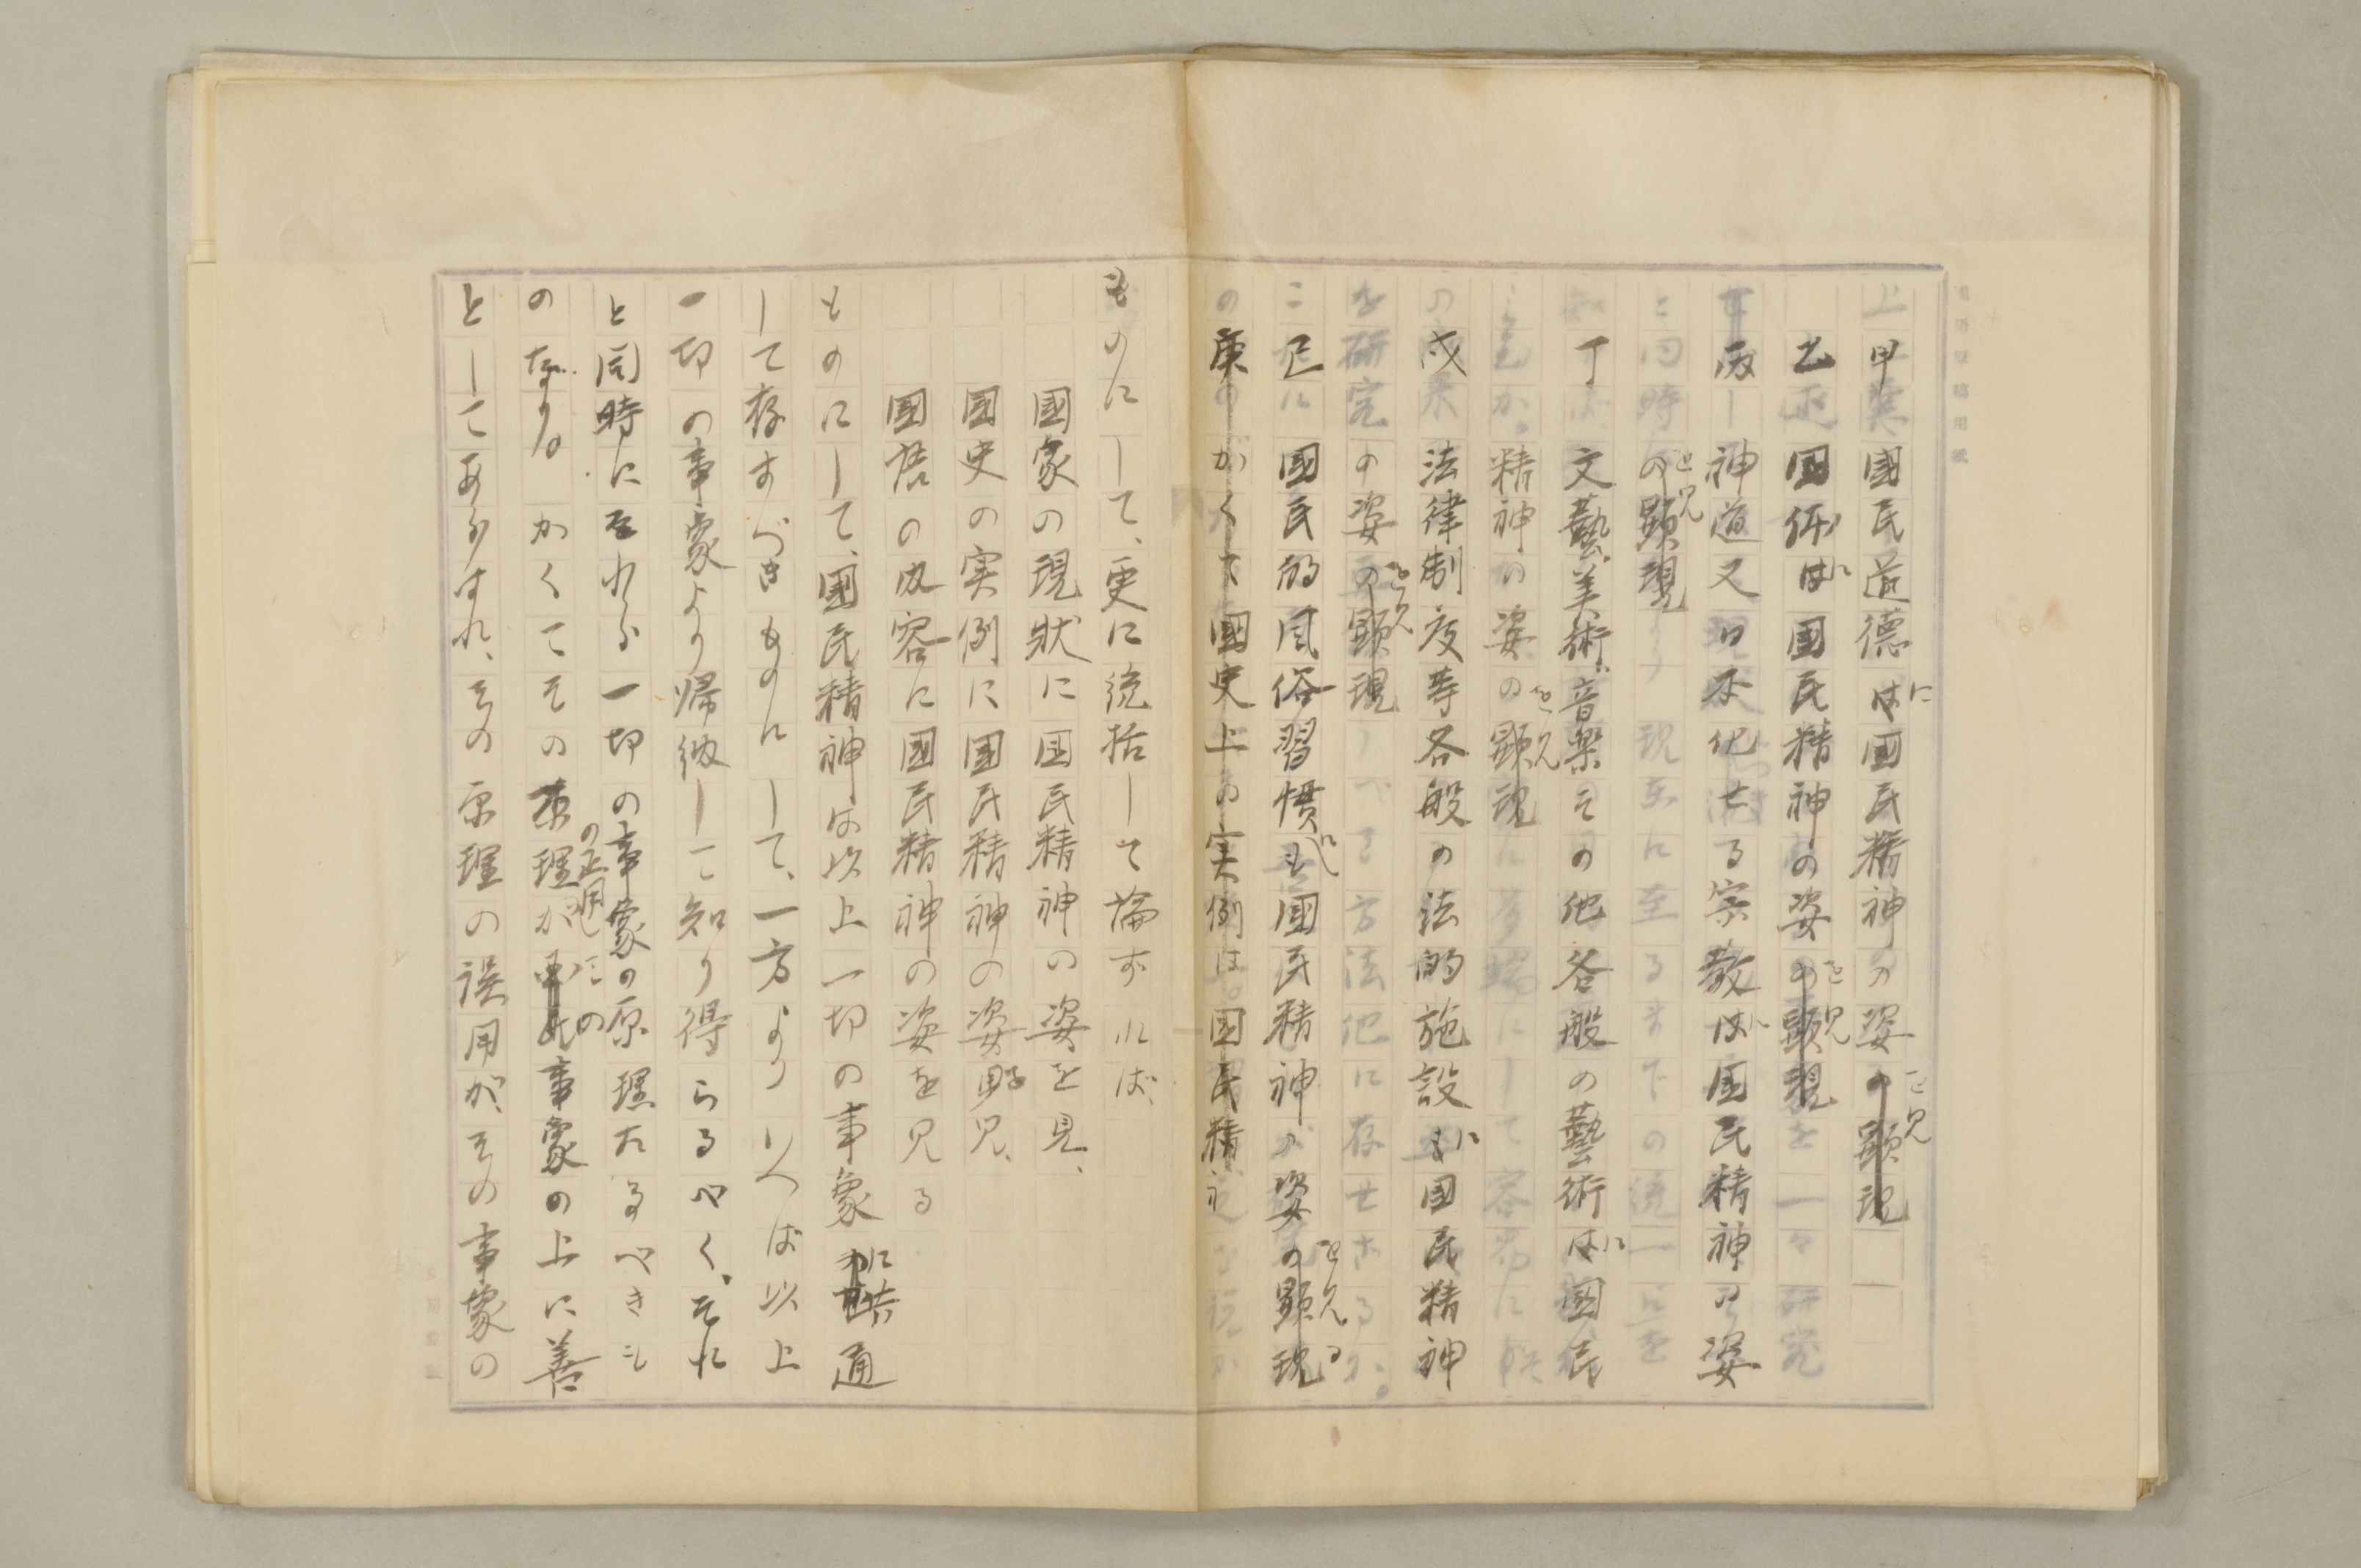 甲　國民道德に國民精神の姿を見
乙　国体に國民精神の姿を見
丙　神道又は日本化せる宗教に国民精神の姿
を見
丁　文藝、美術、音楽その他各般の藝術に國民
精神の姿を見
戊　法律制度等各般の法的施設に国民精神
の姿を見
己　國民的風俗習慣に國民精神の姿を見る
ものにして、更に統括して論ずれば、
國家の現狀に国民精神の姿を見、
國史の実例に国民精神の姿を見、
國語の内容に國民精神の姿を見る
ものにして、國民精神は以上一切の事象に共通
して存すべきものにして、一方よりいへば以上
一切の事象より帰納して知り得らるべく、それ
と同時にそれら一切の事象の原理たるべきも
のなり。かくてその原理の正用がこの事象の上に善
としてあらはれ、その原理の誤用が、その事象の